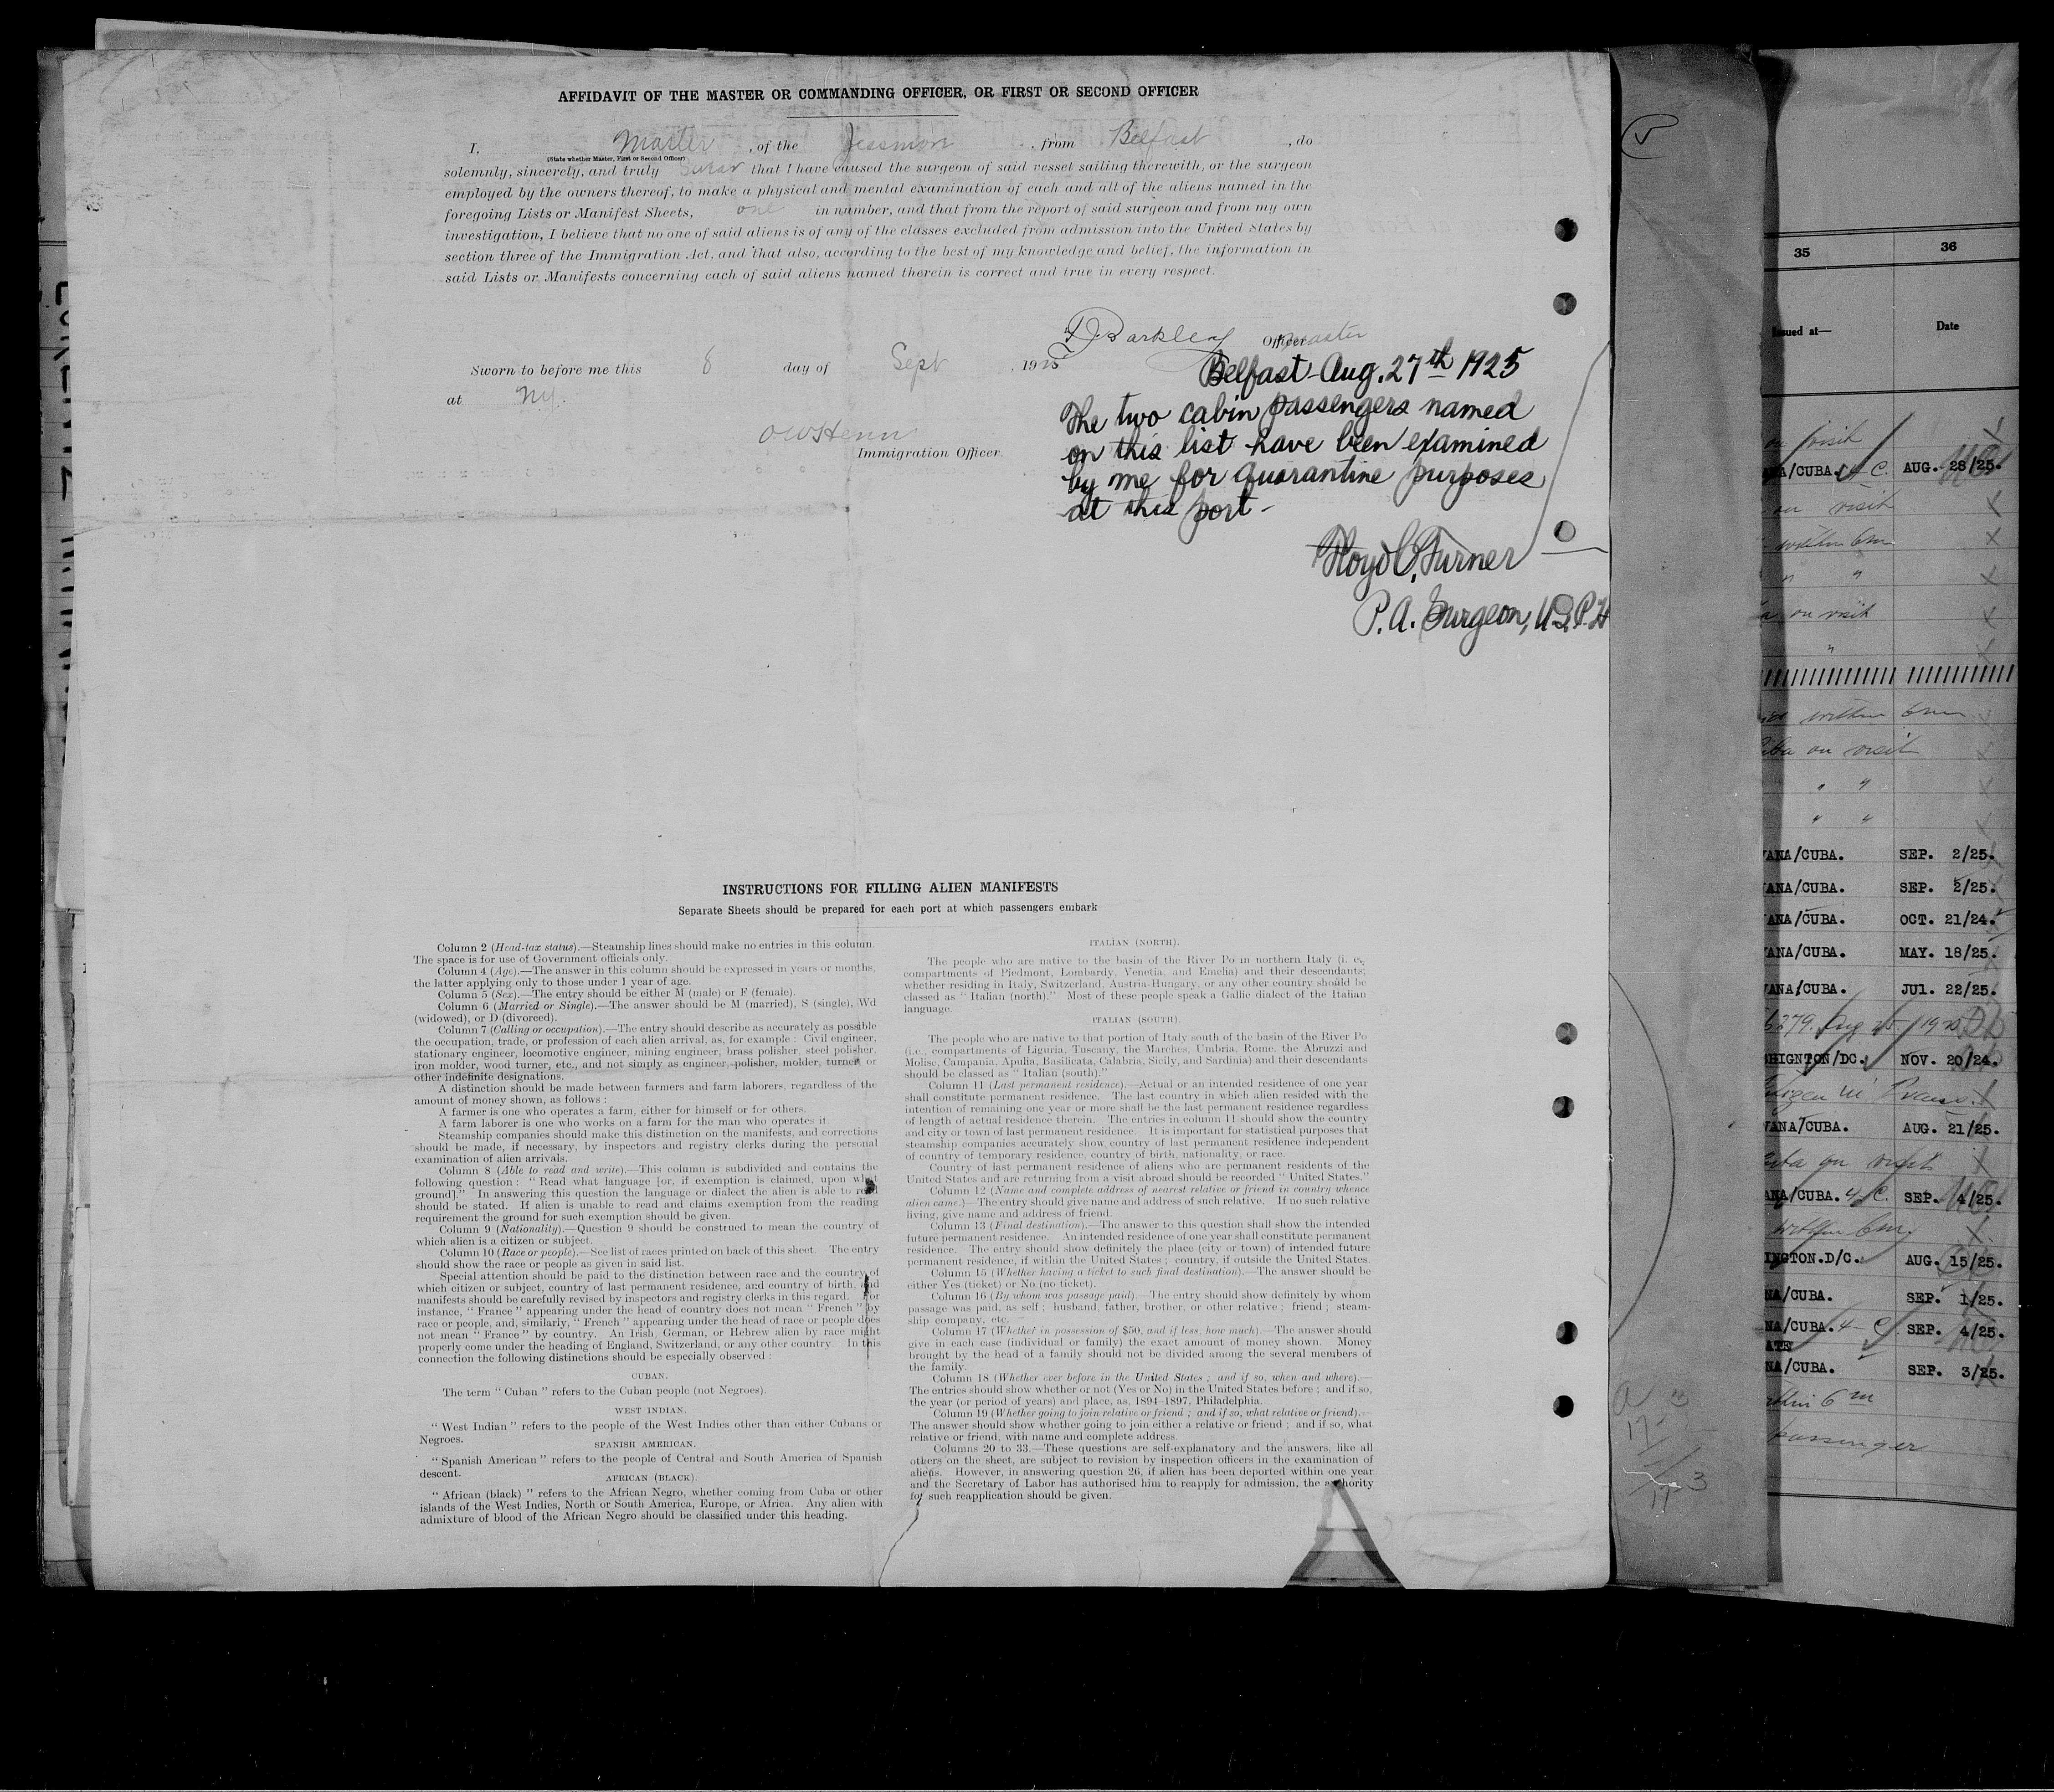 AFFIDAVIT OF THE MASTER OR COMMANDING OFFICER, OR FIRST OR SECOND OFFICER
I, Master, of the Jessmore, from Belfast, do
(State whether Master, First or Second Officer)
solemnly, sincerely, and truly swear that I have caused the surgeon of said vessel sailing therewith, or the surgeon
employed by the owners thereof, to make a physical and mental examination of each and all of the aliens named in the
foregoing Lists or Manifest Sheets, one in number, and that from the report of said surgeon and from my own
investigation, I believe that no one of said aliens is of any of the classes excluded from admission into the United States by
section three of the Immigration Act, and that also, according to the best of my knowledge and belief, the information in
said Lists or Manifests concerning each of said aliens named therein is correct and true in every respect.
Barkley Officer master
Sworn to before me this 8 day of Sept, 1925
at NY.
OWHenn
Immigration Officer.
Belfast - Aug. 27th 1925
The two cabin passengers named
on this list have been examined
by me for quarantine purposes
at this port -
Floyd C. Turner
P. A. Surgeon, U.S.P.H
INSTRUCTIONS FOR FILLING ALIEN MANIFESTS
Separate Sheets should be prepared for each port at which passengers embark
Column 2 (Head-tax status).—Steamship lines should make no entries in this column.
The space is for use of Government officials only.
Column 4 (Age).—The answer in this column should be expressed in years or months,
the latter applying only to those under 1 year of age.
Column 5 (Sex).—The entry should be either M (male) or F (female).
Column 6 (Married or Single).—The answer should be M (married), S (single), Wd
(widowed), or D (divorced).
Column 7 (Calling or occupation).—The entry should describe as accurately as possible
the occupation, trade, or profession of each alien arrival, as, for example : Civil engineer,
stationary engineer, locomotive engineer, mining engineer, brass polisher, steel polisher,
iron molder, wood turner, etc., and not simply as engineer, polisher, molder, turner or
other indefinite designations.
A distinction should be made between farmers and farm laborers, regardless of the
amount of money shown, as follows :
A farmer is one who operates a farm, either for himself or for others.
A farm laborer is one who works on a farm for the man who operates it.
Steamship companies should make this distinction on the manifests, and corrections
should be made, if necessary, by inspectors and registry clerks during the personal
examination of alien arrivals.
Column 8 (Able to read and write).—This column is subdivided and contains the
following question : “ Read what language [or, if exemption is claimed, upon what
ground].” In answering this question the language or dialect the alien is able to read
should be stated. If alien is unable to read and claims exemption from the reading
requirement the ground for such exemption should be given.
Column 9 (Nationality).—Question 9 should be construed to mean the country of
which alien is a citizen or subject.
Column 10 (Race or people).—See list of races printed on back of this sheet. The entry
should show the race or people as given in said list.
Special attention should be paid to the distinction between race and the country of
which citizen or subject, country of last permanent residence, and country of birth, and
manifests should be carefully revised by inspectors and registry clerks in this regard. For
instance, “ France ” appearing under the head of country does not mean “ French ” by
race or people, and, similarly, “ French ” appearing under the head of race or people does
not mean “ France ” by country. An Irish, German, or Hebrew alien by race might
properly come under the heading of England, Switzerland, or any other country. In this
connection the following distinctions should be especially observed :
CUBAN.
The term “ Cuban ” refers to the Cuban people (not Negroes).
WEST INDIAN.
“ West Indian ” refers to the people of the West Indies other than either Cubans or
Negroes.
SPANISH AMERICAN.
“ Spanish American ” refers to the people of Central and South America of Spanish
descent.
AFRICAN (BLACK).
“ African (black) ” refers to the African Negro, whether coming from Cuba or other
islands of the West Indies, North or South America, Europe, or Africa. Any alien with
admixture of blood of the African Negro should be classified under this heading.
ITALIAN (NORTH).
The people who are native to the basin of the River Po in northern Italy (i. e.,
compartments of Piedmont, Lombardy, Venetia, and Emelia) and their descendants,
whether residing in Italy, Switzerland, Austria-Hungary, or any other country should be
classed as “ Italian (north).” Most of these people speak a Gallic dialect of the Italian
language.
ITALIAN (SOUTH).
The people who are native to that portion of Italy south of the basin of the River Po
(i.e., compartments of Liguria, Tuscany, the Marches, Umbria, Rome, the Abruzzi and
Molise, Campania, Apulia, Basilicata, Calabria, Sicily, and Sardinia) and their descendants
should be classed as “ Italian (south).”
Column 11 (Last permanent residence).—Actual or an intended residence of one year
shall constitute permanent residence. The last country in which alien resided with the
intention of remaining one year or more shall be the last permanent residence regardless
of length of actual residence therein. The entries in column 11 should show the country
and city or town of last permanent residence. It is important for statistical purposes that
steamship companies accurately show country of last permanent residence independent
of country of temporary residence, country of birth, nationality, or race.
Country of last permanent residence of aliens who are permanent residents of the
United States and are returning from a visit abroad should be recorded “ United States.”
Column 12 (Name and complete address of nearest relative or friend in country whence
alien came.)—The entry should give name and address of such relative. If no such relative
living, give name and address of friend.
Column 13 (Final destination).—The answer to this question shall show the intended
future permanent residence. An intended residence of one year shall constitute permanent
residence. The entry should show definitely the place (city or town) of intended future
permanent residence, if within the United States ; country, if outside the United States.
Column 15 (Whether having a ticket to such final destination).—The answer should be
either Yes (ticket) or No (no ticket).
Column 16 (By whom was passage paid).—The entry should show definitely by whom
passage was paid, as self ; husband, father, brother, or other relative ; friend ; steam-
ship company, etc.
Column 17 (Whether in possession of $50, and if less, how much).—The answer should
give in each case (individual or family) the exact amount of money shown. Money
brought by the head of a family should not be divided among the several members of
the family.
Column 18 (Whether ever before in the United States ; and if so, when and where).—
The entries should show whether or not (Yes or No) in the United States before ; and if so,
the year (or period of years) and place, as, 1894–1897, Philadelphia.
Column 19 (Whether going to join relative or friend ; and if so, what relative or friend).—
The answer should show whether going to join either a relative or friend ; and if so, what
relative or friend, with name and complete address.
Columns 20 to 33.—These questions are self-explanatory and the answers, like all
others on the sheet, are subject to revision by inspection officers in the examination of
aliens. However, in answering question 26, if alien has been deported within one year
and the Secretary of Labor has authorised him to reapply for admission, the authority
for such reapplication should be given.
35 36
Issued at— Date
on visit
NA/CUBA. 4 C. AUG. 28/25.
on visit
within 6m
" "
on visit
"
within 6m
Cuba on visit
" "
" "
VANA/CUBA. SEP. 2/25.
VANA/CUBA. SEP. 2/25.
VANA/CUBA. OCT. 21/24.
VANA/CUBA. MAY. 18/25.
VANA/CUBA. JUl. 22/25.
6279. Aug 25/1925
SHIGNTON/DC. NOV. 20/24.
VANA/CUBA. AUG. 21/25.
Cuba on visit
ANA/CUBA. 4 C. SEP. 4/25.
within 6m.
INGTON.D/C. AUG. 15/25.
NA/CUBA. SEP. 1/25.
NA/CUBA. 4 C. SEP. 4/25.
ATE
NA/CUBA. SEP. 3/25.
within 6m
passenger